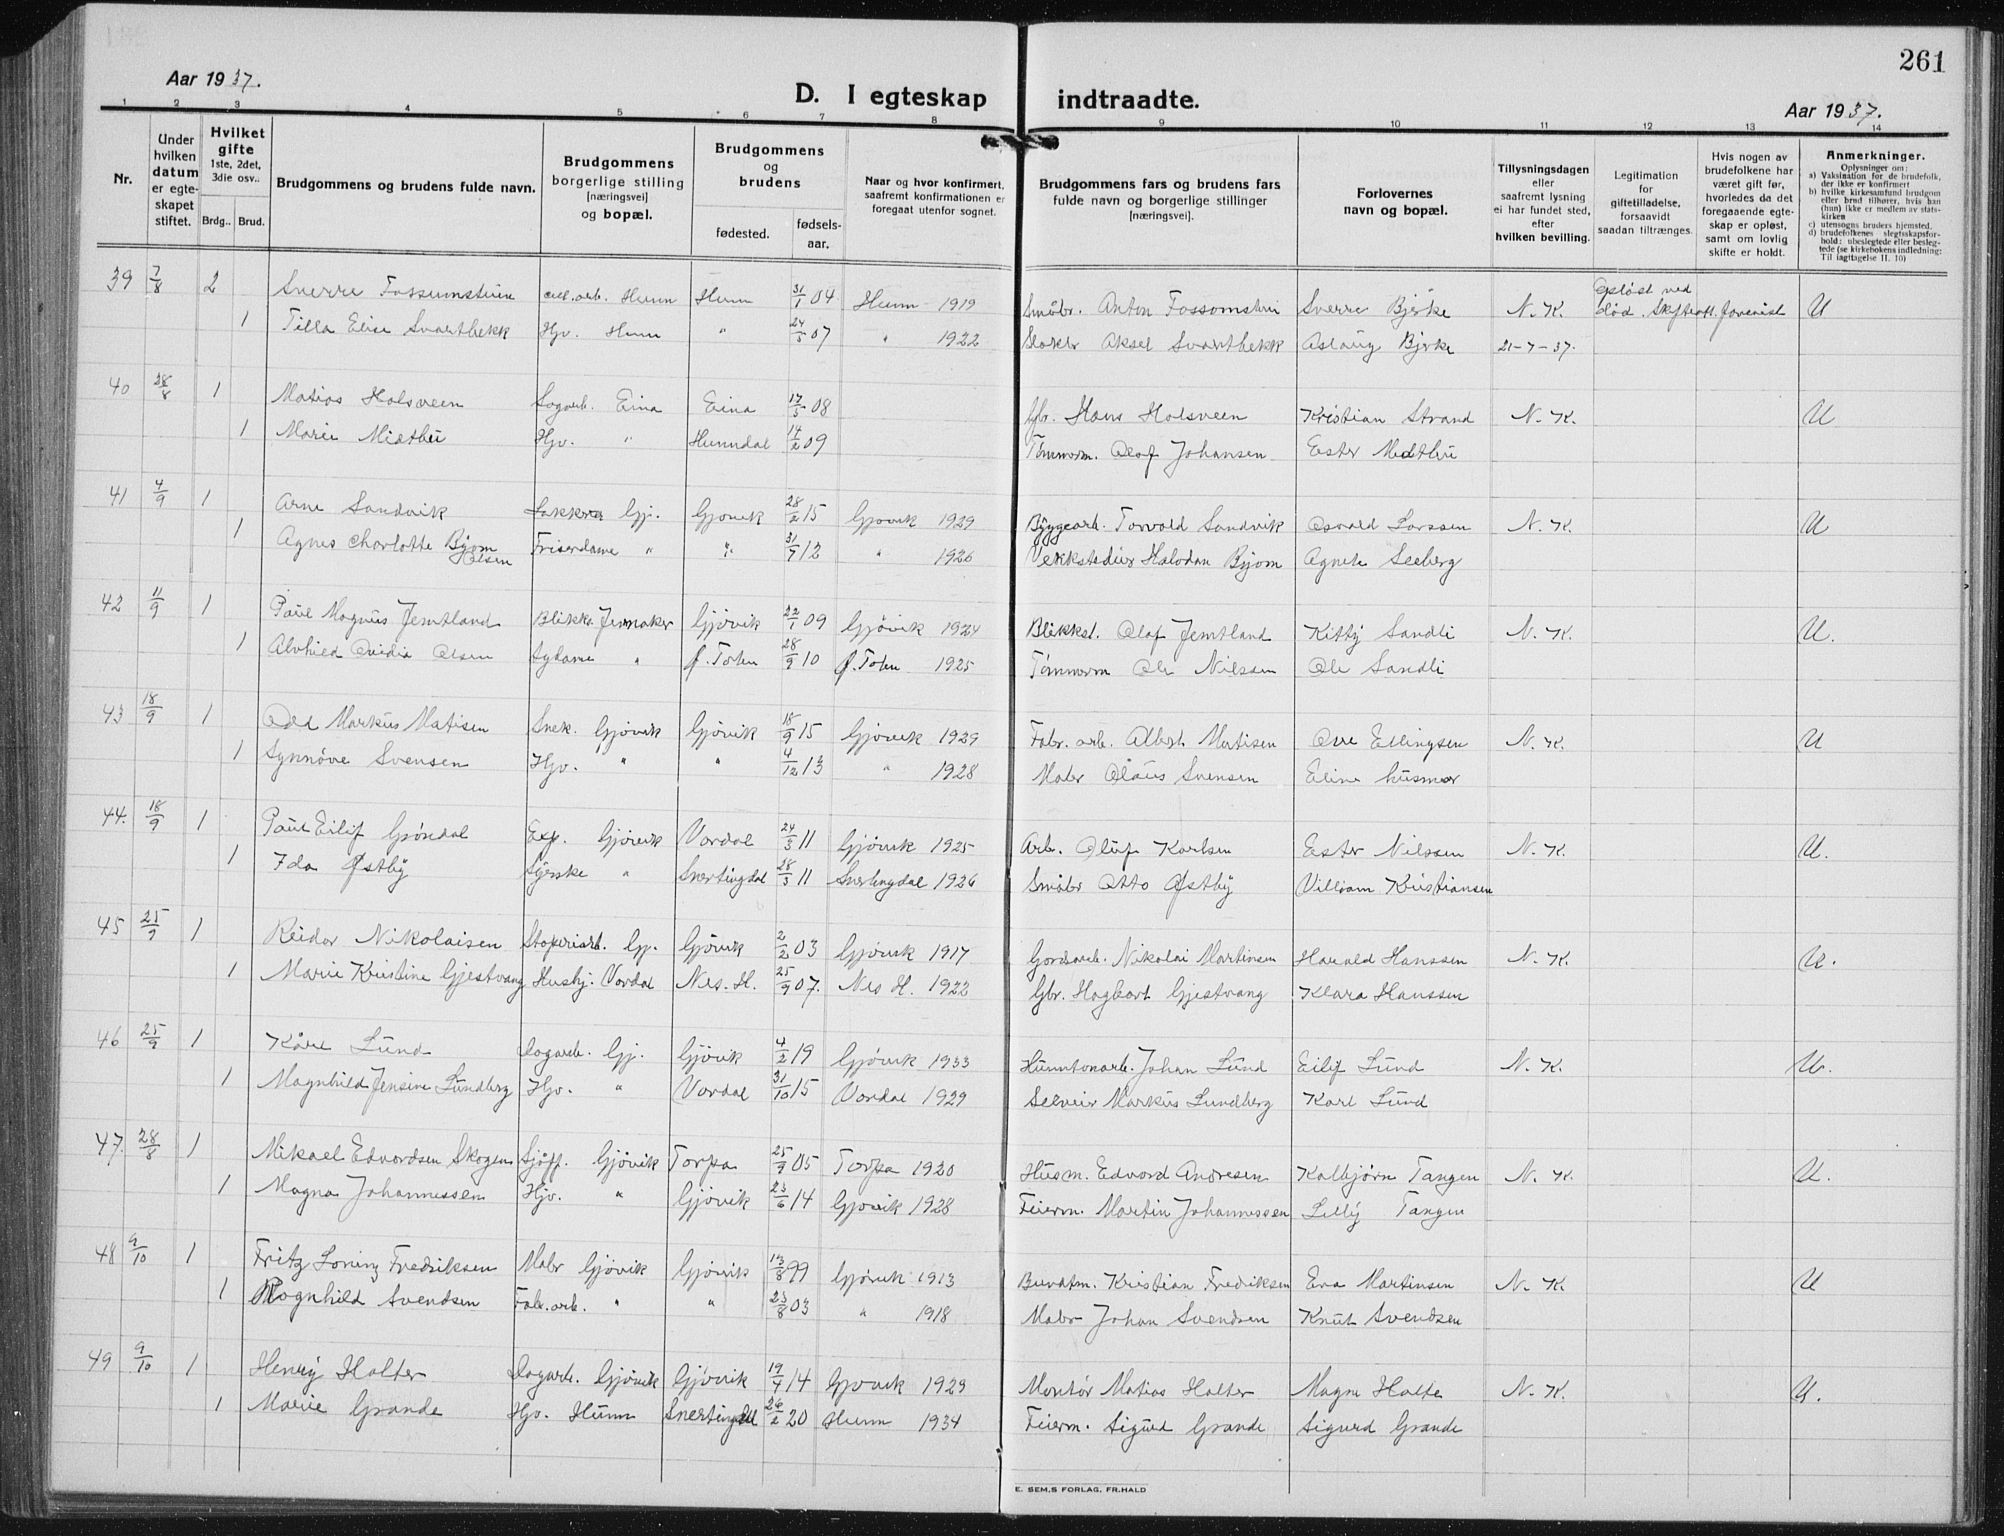 261
Aar 1937.
D. I egteskap indtraadte.
Aar 1937.
1 2 3 4 5 6 7 8 9 10 11 12 13 14
Nr.
Under hvilken datum er egteskapet stiftet.
Hvilket gifte 1ste, 2det, 3die osv..
Brdg.. Brud.
Brudgommens og brudens fulde navn.
Brudgommens borgerlige stilling [næringsvei] og bopæl.
Brudgommens og brudens
fødested. fødselsaar.
Naar og hvor konfirmert, saafremt konfirmationen er foregaat utenfor sognet.
Brudgommens fars og brudens fars fulde navn og borgerlige stillinger [næringsvei].
Forlovernes navn og bopæl.
Tillysningsdagen eller saafremt lysning ei har fundet sted, efter hvilken bevilling.
Legitimation for giftetilladelse, forsaavidt saadan tiltrænges.
Hvis nogen av brudefolkene har været gift før, hvorledes da det foregaaende egteskap er opløst, samt om lovlig skifte er holdt.
Anmerkninger.
Oplysninger om:
a) Vaksination for de brudefolk, der ikke er konfirmert
b) hvilke kirkesamfund brudgom eller brud tilhører, hvis han (hun) ikke er medlem av statskirken
c) utensogns bruders hjemsted.
d) brudefolkenes slegtsskapsforhold: ubeslegtede eller beslegtede (se kirkebokens indledning: Til iagttagelse II. 10)
39 7/8 2 Sverre Fossumstuen cell.arb. Hunn Hunn 31/1 04 Hunn 1919 Småbr. Anton Fossomstuen Sverre Bjerke N. K. Opløst ved død. Skifteatt. forevist U
1 Tilla Elise Svartbekk Hjv. Hunn " 24/5 07 " 1922 Aksel Svartbekk Aslaug Bjerke 21-7-37.
40 28/8 1 Matias Halsveen Sagarb. Eina Eina 17/5 08 Gbr. Hans Halsveen Kristian Strand N. K. U
1 Marie Midthu Hjv. " Hunndal 14/2 09 Tömmerm. Olaf Johansen Ester Midthu
41 4/9 1 Arne Sandvik Gj. Gjøvik 28/2 15 Gjøvik 1929 Byggearb. Torvald Sandvik Osvald Larssen N. K. U
1 Agnes Charlotte Bjom Olsen Friserdame " " 31/9 12 " 1926 Halvdan Bjom Agnete Seeberg
42 11/9 1 Paul Magnus Jemtland Blikksl. Jevnaker Gjövik 22/1 09 Gjövik 1924 Blikksl. Olaf Jemtland Kitty Sandli N. K. U.
1 Alvhild Ovidia Olsen Sydame " Ø. Toten 28/9 10 Ø. Toten 1925 Tömmerm Ole Nilssen Ole Sandli
43 18/9 1 Odd Markus Matisen Snek. Gjøvik Gjövik 18/9 15 Gjøvik 1929 Fabr. arb. Albert Matisen Ove Ellingsen N. K. U
1 Synnöve Svensen Hjv. " " 4/12 13 " 1928 Maler Olaus Svensen Eline husmor
44. 18/9 1 Paul Eilif Gröndal Exp. Gjövik Vardal 24/3 11 Gjövik 1925 Arb. Oluf Karlsen Ester Nilssen N. K. U.
1 Ida Østby Syerske " Snertingdal 28/3 11 Snertingdal 1926 Småbr Otto Østby Villiam Kristiansen
45 25/9 1 Reidar Nikolaisen Støperiarb. Gj. Gjövik 2/2 03 Gjövik 1917 Gårdsarb. Nikolai Martinsen Harald Hanssen N. K. U.
1 Marie Kristine Gjestvang Hushj. Vardal Nes. H. 25/9 07. Nes H. 1922 Gbr. Hagbart Gjestvang Klara Hanssen
46 25/9 1 Kåre Lund Dagarb. Gj. Gjövik 4/2 19 Gjövik 1933 Hunntonarb. Johan Lund Eilif Lund N. K. U.
1 Magnhild Jensine Lundberg Hjv. " Vardal 31/10 15 Vardal 1929 Selveier Markus Lundberg Karl Lund
47. 28/8 1 Mikael Edvardsen Skogen Sjåff. Gjövik Torpa 25/9 05 Torpa 1920 Husm. Edvard Andresen Kolbjørn Tangen N. K. U.
1 Magna Johannessen Hjv. " Gjövik 23/6 14 Gjøvik 1928 Feierm. Martin Johannessen Lilly Tangen
48 9/10 1 Fritz Loring Fredriksen Maler Gjövik Gjövik 13/8 99 Gjövik 1913 Buntm. Kristian Fredriksen Eva Martinsen N. K. U
1 Ragnhild Svendsen Fab. arb. " " 23/8 03 " 1918 Maler Johan Svendsen Knut Svendsen
49 9/10 1 Henry Halter Dagarb. Gjövik Gjövik 19/4 14 Gjøvik 1929 Montör Matias Halter Magne Halte N. K. U.
1 Marie Grande Hjv. Hunn Snertingdal 26/2 20 Hunn 1934 Feierm. Sigurd Grande Sigurd Grande
E. SEM,S FORLAG, FR.HALD